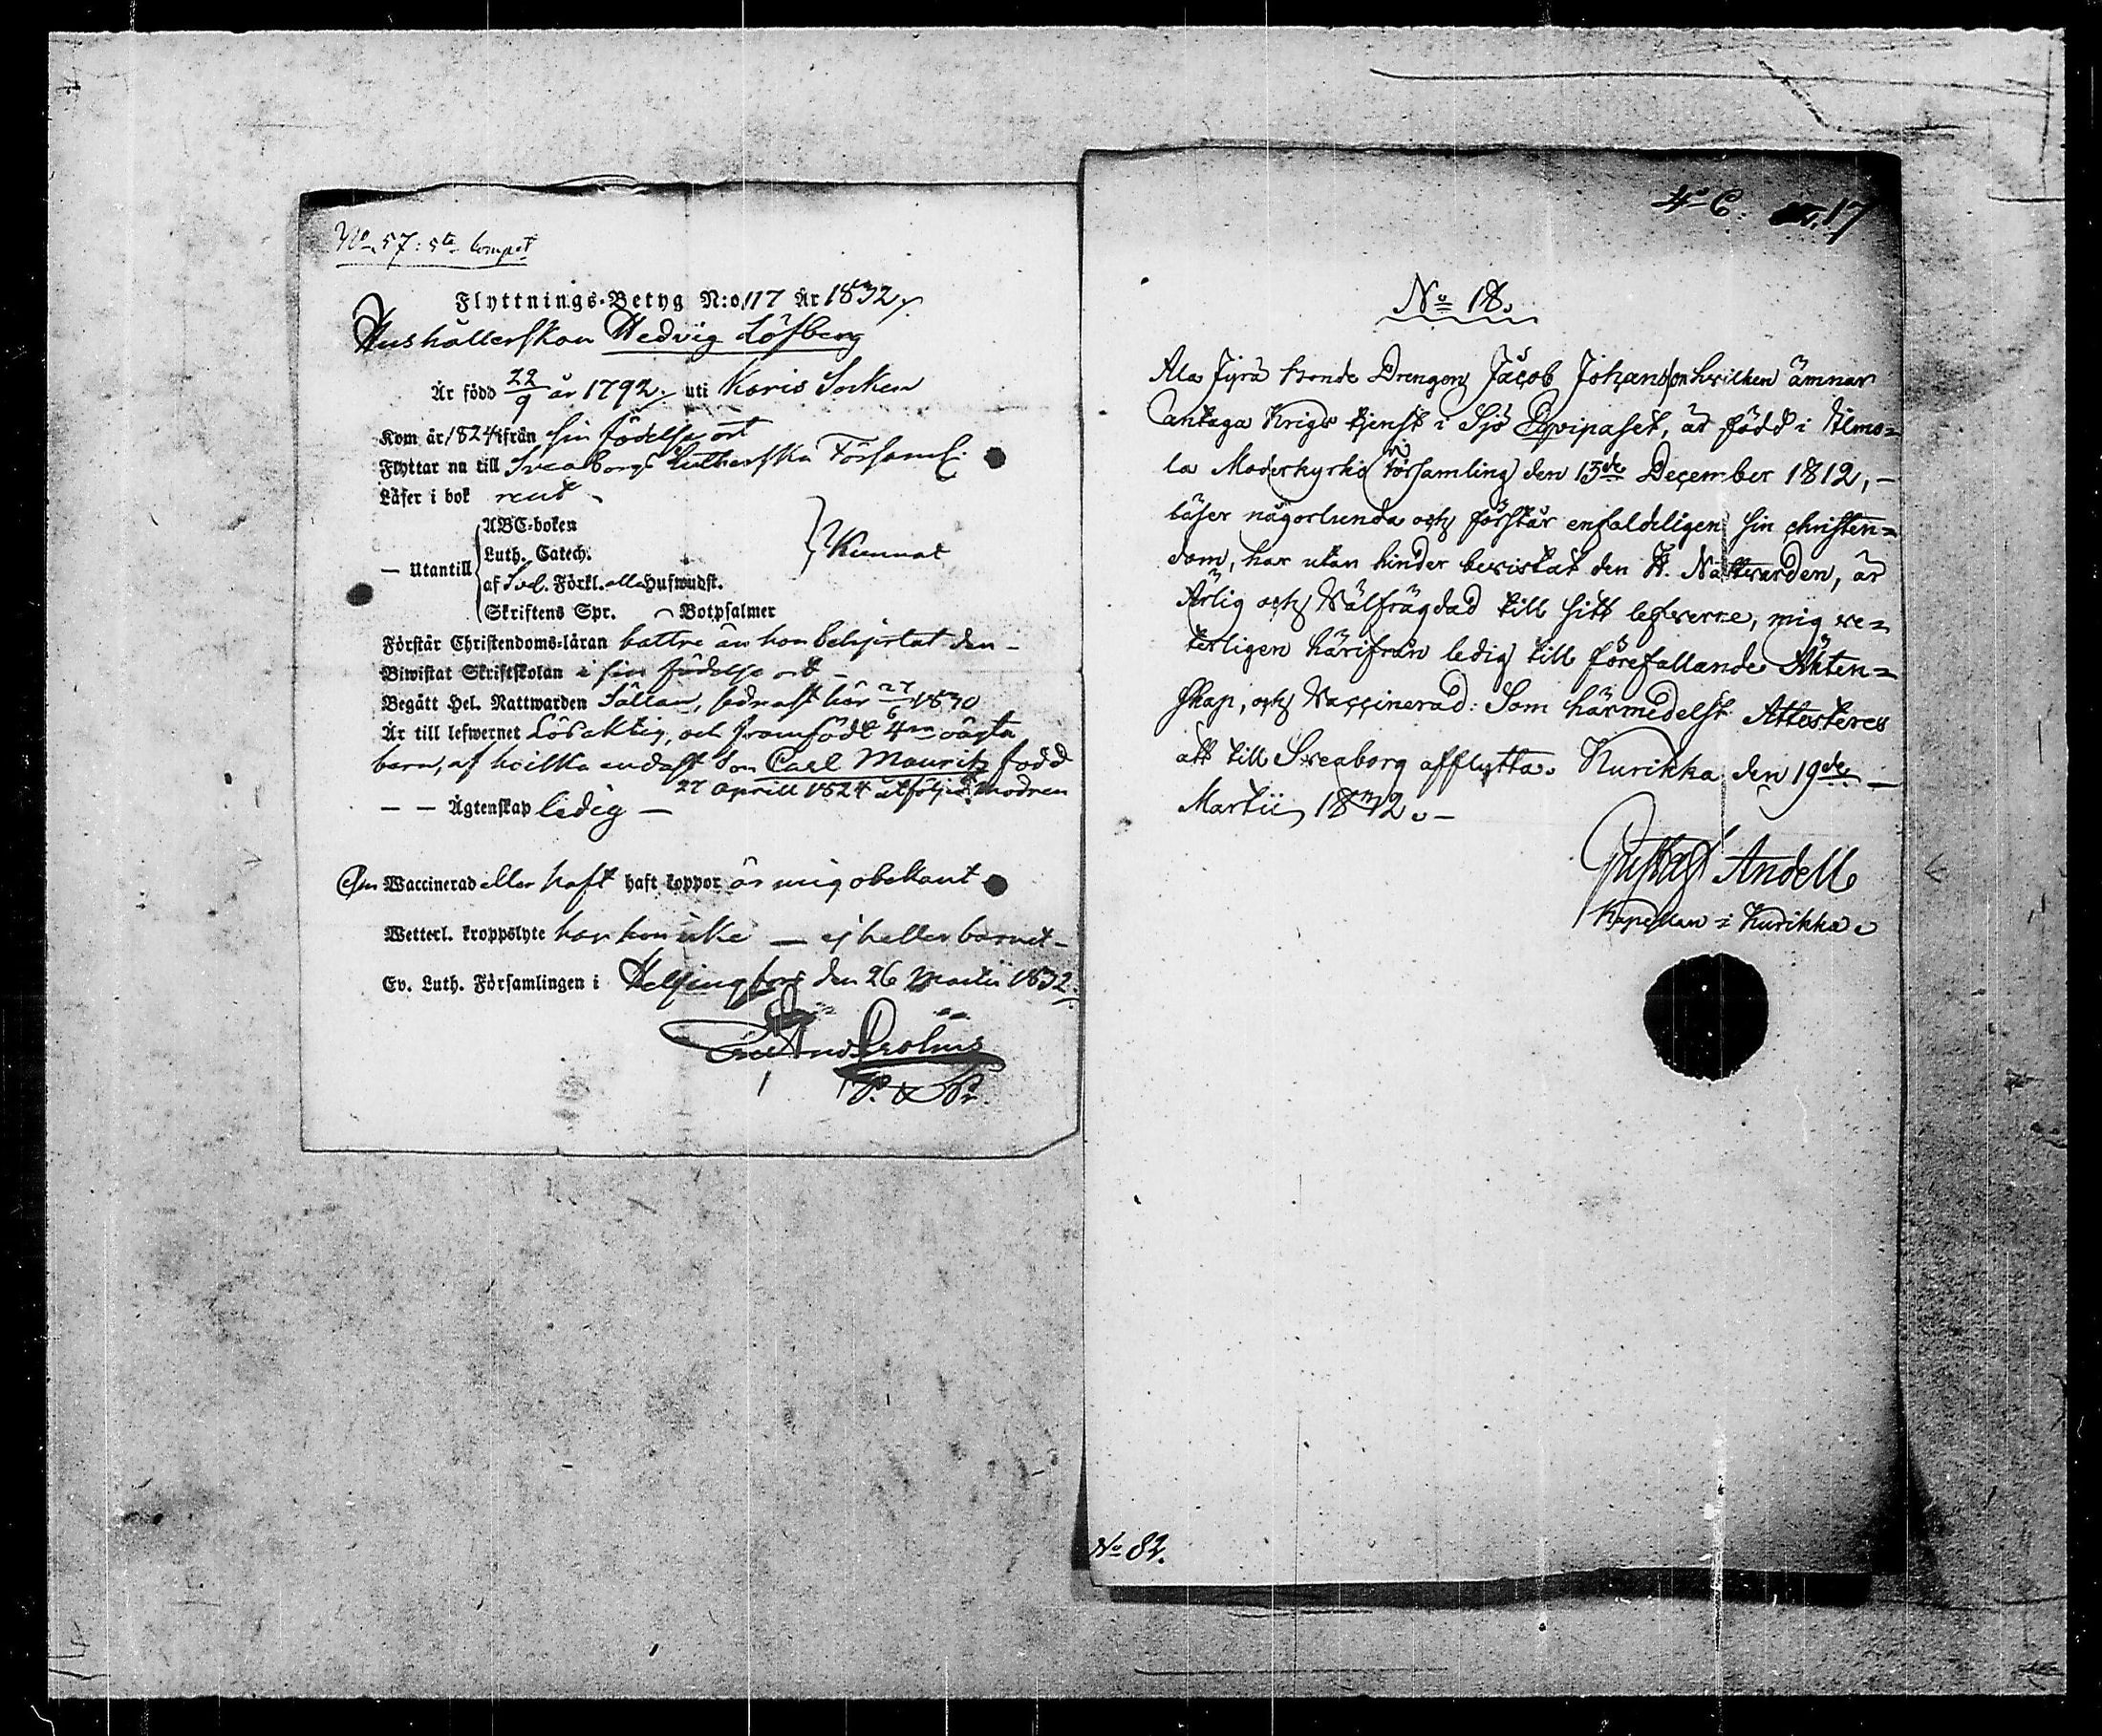 No 57: 5te Compet
Flyttnings-Betyg N:o 117 År 1832,
Hushållerskan Hedvig Löfberg
Är född 22/9 år 1792, uti Karis Socken
Kom år 1824 ifrån sin födelse ort
Flyttar nu till Sveaborgs Lutherska Församl:
Läser i bok rent -
— Utantill
ABC-boken
Luth. Catech.
af Sveb. Förkl. alla Hufwudst.
Skriftens Spr. — Botpsalmer
Kunnat
Förstår Christendoms-läran battre än hon behjertat den -
Biwistat Skriftskolan i sin födelse ort -
Begått Hel. Nattwarden Sällan, sednast här 27/6 1830
Är till lefwernet Lösaktig, och framfödt 4ra oägta
barn, af hvilka endast Son Carl Mauritz född
27 Aprill 1824 åtföljer modren
— — Ägtenskap ledig —
Om Waccinerad eller haft haft koppor är mig obekant
Wetterl. kroppslyte har hon icke — ej heller barnet -
Ev. Luth. Församlingen i Helsingfors den 26 Martii 1832.
P. & Pr.
4 C. 17
No 18.
Ala Jyrä bonde Drengen Jacob Johansson hvilken ämnar
antaga Krigs tjenst i Sjö Eqvipaget, är född i Ilmo=
la Moderkyrko församling den 13de December 1812, -
läser någorlunda och förstår enfaldeligen sin christen=
dom, har utan hinder bevistat den H. Nattvarden, är
Ärlig och Välfrägdad till sitt lefverne, mig ve=
terligen härifrån ledig till förefallande Äkten=
skap, och Vaccinerad: Som härmedelst Attesteres
att till Sveaborg afflytta. Kurikka den 19de —
Martii 1832. -
Gustaf Andell
Kapellan i Kurikka
No 82.